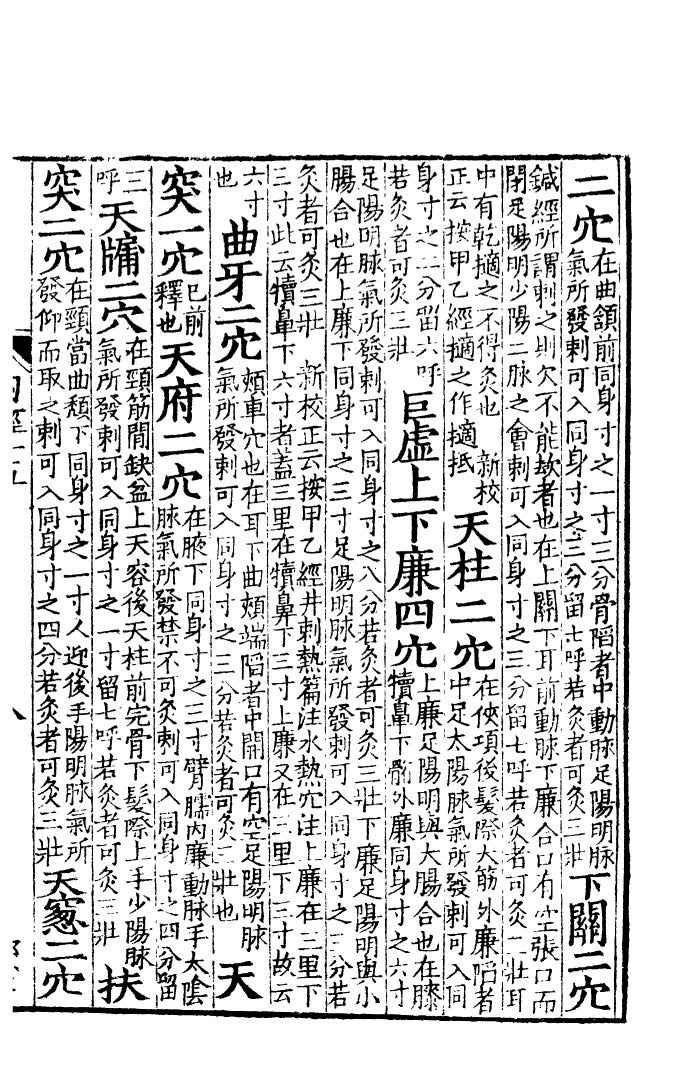 二穴
在曲頷前同身寸之一寸三分骨陷者中動脉足陽明脉
氣所發刺可入同身寸之三分留七呼若灸者可灸三壯
下關二穴
鍼經所謂刺之則欠不能㰦者也在上關下耳前動脉下廉合口有空張口而
閉足陽明少陽二脉之會刺可入同身寸之三分留七呼若灸者可灸三壯耳
中有乾擿之不得灸也 新校
正云按甲乙經擿之作擿抵
天柱二穴
在俠項後髮際大筋外廉陷者
中足太陽脉氣所發刺可入同
身寸之二分留六呼
若灸者可灸三壯
巨虛上下廉四穴
上廉足陽明與大腸合也在膝
犢鼻下䯒外廉同身寸之六寸
足陽明脉氣所發刺可入同身寸之八分若灸者可灸三壯下廉足陽明與小
腸合也在上廉下同身寸之三寸足陽明脉氣所發刺可入同身寸之三分若
灸者可灸三壯 新校正云按甲乙經井刺熱篇注水熱穴注上廉在三里下
三寸此云犢鼻下六寸者盖三里在犢鼻下三寸上廉又在三里下三寸故云
六寸
也
曲牙二穴
頰車穴也在耳下曲頰端陷者中開口有空足陽明脉
氣所發刺可入同身寸之三分若灸者可灸三壯也
天
突一穴
已前
釋也
天府二穴
在腋下同身寸之三寸臂臑內廉動脉手太陰
脉氣所發禁不可灸刺可入同身寸之四分留
三
呼
天牖二穴
在頸筋間缺盆上天容後天柱前完骨下髮際上手少陽脉
氣所發刺可入同身寸之一寸留七呼若灸者可灸三壯
扶
突二穴
在頸當曲頰下同身寸之一寸人迎後手陽明脉氣所
發仰而取之刺可入同身寸之四分若灸者可灸三壯
天窻二穴
內經十五
八